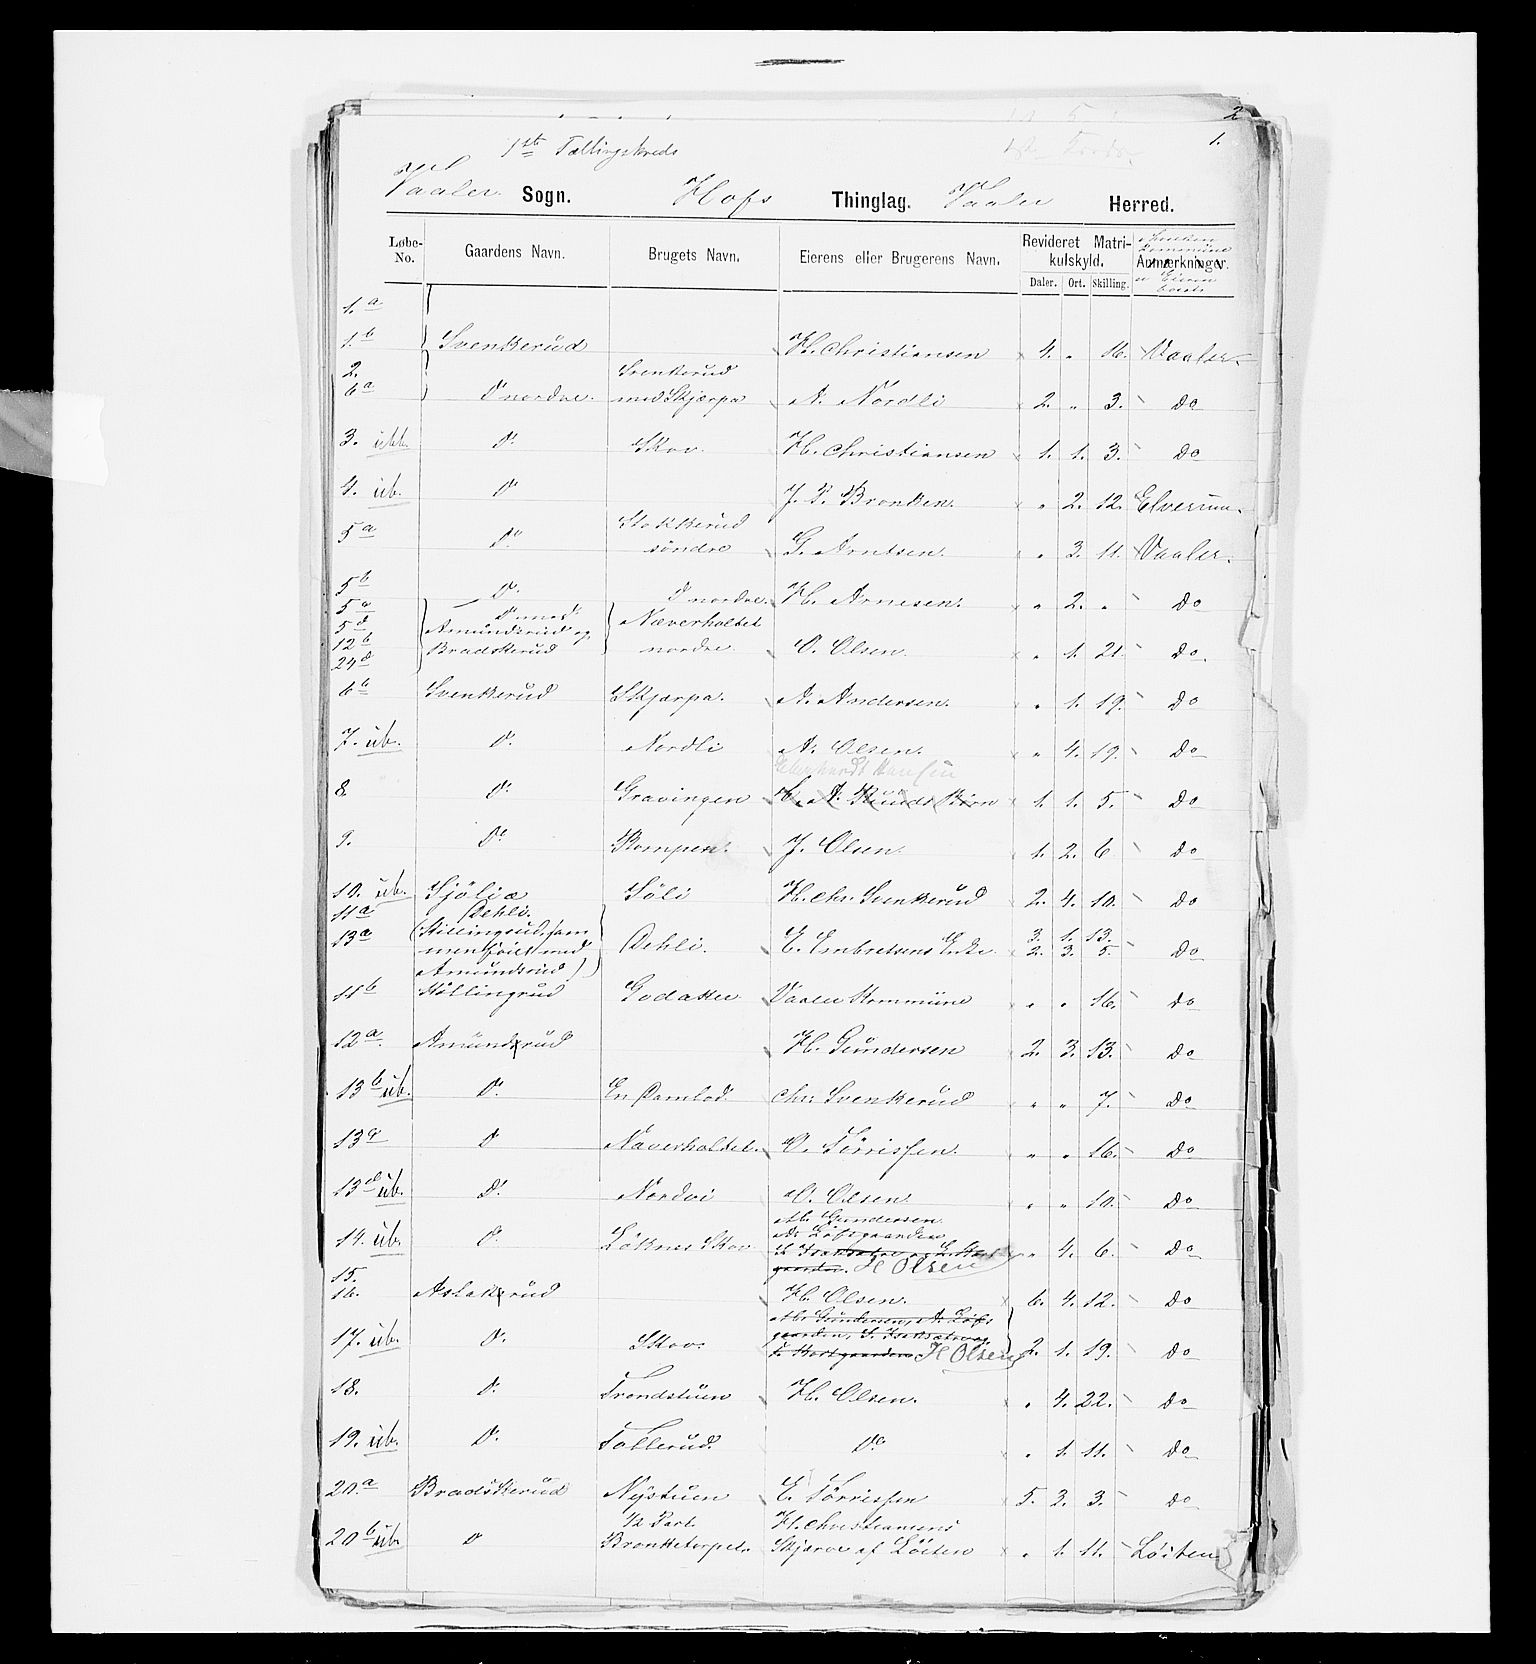 2
1.
1ste Tællingskreds
Vaaler Sogn. Hofs Thinglag. Vaaler Herred.
Løbe-No. Gaardens Navn. Brugets Navn. Eierens eller Brugerens Navn. Revideret Matrikulskyld. Anmærkninger.
Daler. Ort. Skilling.
1.a
1.b Svenkerud H. Christiansen 4. " 16. Vaaler.
2. Svenkerud
6a Do nordre. med Skjærpa A. Nordli 2. " 3. Do
3. ub. Do Skov. H. Christiansen 1. 1. 3. Do
4. ub. Do J. P. Bronken. " 2. 12. Elverum.
5a Do Stokkerud søndre G. Arntsen. " 3. 11. Vaaler.
5b Do Do nordre. H. Arnesen. " 2. " Do
5a Do med Næverholtet
5d Amundsrud og
12b Bradskerud nordre. O. Olsen. " 1. 21. Do.
24d
6b Svenkerud Skjærpa. A. Andersen. " 1. 19. Do
7. ub. Do Nordli A. Olsen. " 4. 19. Do
Hansen
8. Do Gravingen 1. 1. 5. Do
9. Do Rompen. J. Olsen. 1. 2. 6 Do
10. ub. Sjøliæ Søli H. Chr. Svenkerud 2. 4. 10. Do
11a Dehli. 3. 1. 13.
13a (Stillingsrud sammenføiet med Amundsrud) Dehli. E. Embretsens Enke 2. 3. 5. Do
11b Stillingrud Godaker Vaaler Kommune " " 16. Do
12a. Amundsrud H. Gundersen 2. 3. 13. Do
13b ub. Do En Damlod Chr. Svenkerud " " 7. Do
13c Do Næverholtet. O. Tørrissen. " " 16. Do
13d ub. Do Nordvi O. Olsen. " " 10. Do
M. Gundersen
14. ub. Do Løknes Skov H Olsen " 4. 6. Do
15.
16. Aslaksrud H. Olsen. 6. 4. 12. Do
17. ub. Do Skov. H Olsen 2. 1. 19. Do
18. Do Trondstuen H. Olsen. " 4. 22. Do
19. ub. Do Tollerud. Do " 1. 11. Do
20.a Bradskerud Nystuen E. Tørrissen 5. 2. 3. Do
1/2 Part. H. Christiansens
20b ub. Do Bronketorpet. Skjæroe af Løiten " 1. 11. Løiten